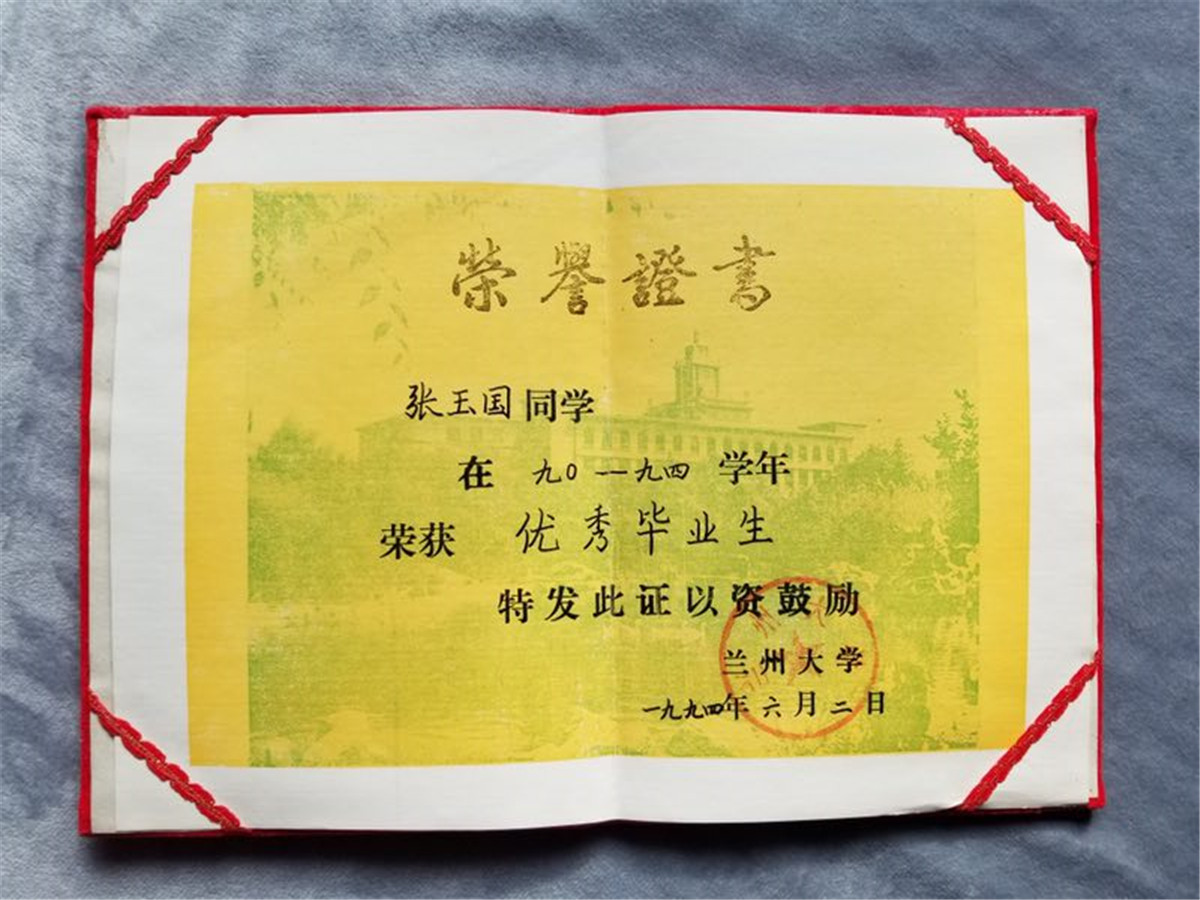 榮譽證書
张玉国同学
在九〇—九四学年
荣获优秀毕业生
特发此证以资鼓励
兰州大学
一九九四年六月二日